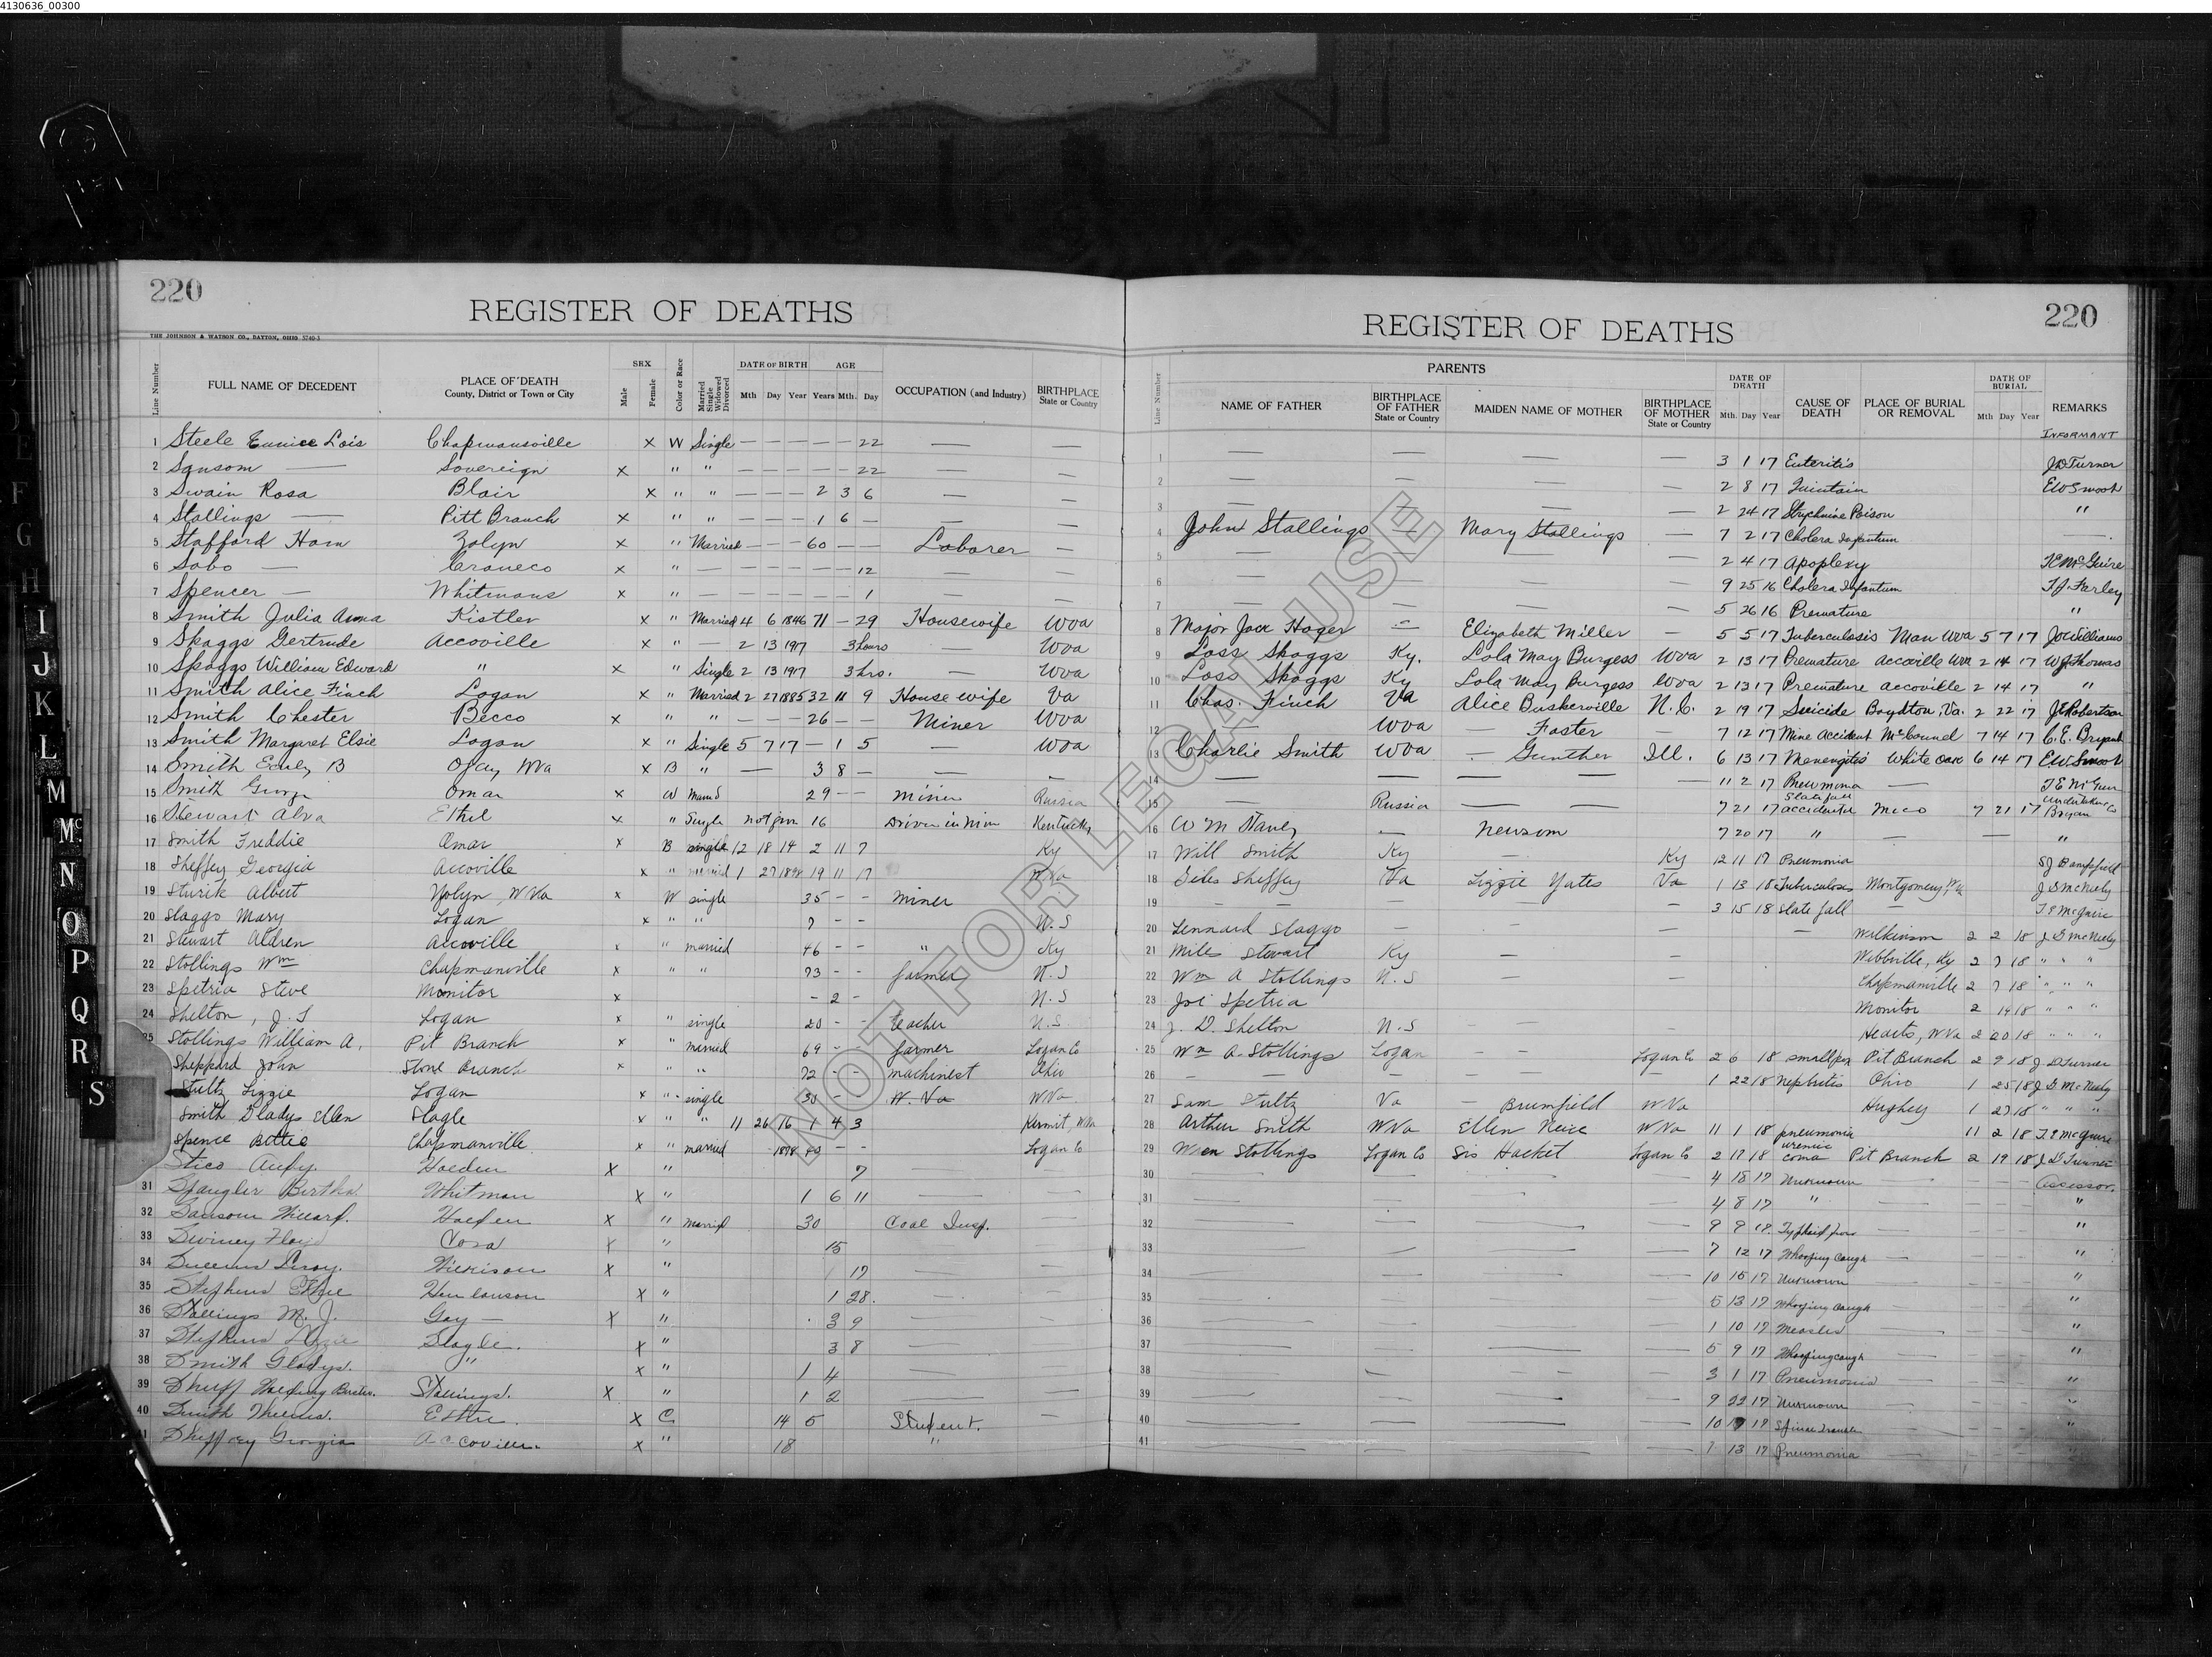 4130636_00300
220
REGISTER OF DEATHS
THE JOHNSON & WATSON CO., DAYTON, OHIO 5740-3
Line Number FULL NAME OF DECEDENT PLACE OF DEATH County, District or Town or City SEX Male Female Color or Race Married Single Widowed Divorced DATE OF BIRTH Mth Day Year AGE Years Mth. Day OCCUPATION (and Industry) BIRTHPLACE State or Country
1 Steele Eunice Lois Chapmansville X W Single — — — — — 22 — —
2 Sansom — Sovereign X " " — — — — — 22 — —
3 Swain Rosa Blair X " " — — — 2 3 6 — —
4 Stallings — Pitt Branch X " " — — — 1 6 — — —
5 Stafford Ham Yolyn X " Married — — — 60 — — Laborer —
6 Sabo — Craneco X " — — — — — — 12 — —
7 Spencer — Whitmans X " — — — — — — 1 — —
8 Smith Julia Anna Kistler X " Married 4 6 1846 71 — 29 Housewife Wva
9 Skaggs Gertrude Accoville X " — 2 13 1917 3 hours — Wva
10 Skaggs William Edward " X " Single 2 13 1917 3 hrs. — Wva
11 Smith Alice Finch Logan X " Married 2 27 1885 32 11 9 House wife Va
12 Smith Chester Becco X " " — — — 26 — — Miner Wva
13 Smith Margaret Elsie Logan X " Single 5 7 17 — 1 5 — Wva
14 Smith B WVa X B " — 3 8 — — —
15 Smith George Omar X W 29 — — miner Russia
16 Stewart Alva Ethel X " Single not given 16 Driver in Mine Kentucky
17 Smith Freddie Omar X B single 12 18 14 2 11 7 Ky
18 Sheffey Georgia Accoville X " married 1 27 1898 19 11 17 WVa
19 Sturik Albert Yolyn, W Va X W single 35 — — miner
20 Slaggs Mary Logan X " " 7 — N.S
21 Stewart Aldren Accoville X " married 46 — — " Ky
22 Stollings Wm Chapmanville X " " 73 — — farmer N.S
23 Spetria Steve Monitor X — 2 — N.S
24 Shelton, J. T Logan X " single 20 — — teacher N.S.
25 Stollings William A. Pit Branch X " married 69 — — farmer Logan Co
Sheppard John Stone Branch X " " 72 — — machinest Ohio
Stultz Lizzie Logan X " single 30 — W. Va WVa
Smith Gladys Ellen Slagle X " " 11 26 16 1 4 3 Kermit, WVa
Spence Bettie Chapmanville X " married 1878 40 — — Logan Co
Stico Holden X " 7
31 Spaugler Bertha Whitman X " 1 6 11 — —
32 Sansom Willard. Holden X " married 30 Coal Insp. —
33 Floyd Cora X " 15
34 Leroy. Wilkison X " 17
35 Stephens X " 1 28. —
36 Stallings M. J. Gay — X " 3 9 —
37 Stephens Lizzie Slagle. X " 3 8
38 Smith Gladys. " X " 1 4
39 Stallings. X " 1 2
40 Smith X C 14 5 Student. —
Sheffrey Georgia Accoville. X " 18 "
220
REGISTER OF DEATHS
Line Number PARENTS NAME OF FATHER BIRTHPLACE OF FATHER State or Country MAIDEN NAME OF MOTHER BIRTHPLACE OF MOTHER State or Country DATE OF DEATH Mth. Day Year CAUSE OF DEATH PLACE OF BURIAL OR REMOVAL DATE OF BURIAL Mth Day Year REMARKS
INFORMANT
1 — — — — 3 1 17 Enteritis J D Turner
2 — — — — 2 8 17 E W Smoot
3 — — — — 2 24 17 Strychnine Poison "
4 John Stallings Mary Stallings — 7 2 17 Cholera Infantum —
5 — — — — 2 4 17 Apoplexy T E McGuire
6 — — — — 9 25 16 Cholera Infantum T J Farley
7 — — — — 5 26 16 Premature "
8 Major Jack Hager — Elizabeth Miller — 5 5 17 Tuberculosis Man Wva 5 7 17 Williams
9 Loss Skaggs Ky. Lola May Burgess Wva 2 13 17 Premature Accoville Wva 2 14 17 W J Thomas
10 Loss Skaggs Ky Lola May Burgess Wva 2 13 17 Premature accoville 2 14 17 "
11 Chas. Finch Va Alice Buskerville N.C. 2 19 17 Suicide Boydton, Va. 2 22 17 J E Robertson
12 — Wva — Foster — 7 12 17 Mine Accident McConnel 7 14 17 C. E. Bryant
13 Charlie Smith Wva — Gunther Ill. 6 13 17 Menengitis White Oak 6 14 17 E W Smoot
14 — — — — 11 2 17 Pneumonia — T E McGuire
15 — Russia — — 7 21 17 Slate fall accidental Meco 7 21 17 Undertaking Co Bryan
16 W M — Newsom 7 20 17 " — — "
17 Will Smith Ky — Ky 12 11 17 Pneumonia S J Bampfield
18 Giles Sheffey Va Lizzie Yates Va 1 13 18 Tuberculosis Montgomery, W Va J D McNeely
19 — — — — 3 15 18 slate fall — T E McGuire
20 Lennard Slaggs — — — — Wilkinson 2 2 18 J D McNeely
21 Miles Stewart Ky — — Webbville, Ky 2 7 18 " " "
22 Wm A Stollings N.S — — Chapmanville 2 7 18 " " "
23 Joe Spetria Monitor 2 14 18 " " "
24 J. D. Shelton N.S — — Hearts, WVa 2 20 18 " " "
25 Wm A. Stollings Logan — — Logan Co 2 6 18 smallpox Pit Branch 2 9 18 J D Turner
26 — — — — — 1 22 18 Nephritis Ohio 1 25 18 J D McNeely
27 Sam Stultz Va — Brumfield WVa Hughey 1 27 18 " " "
28 Arthur Smith WVa Ellen Neice WVa 11 1 18 pneumonia 11 2 18 T E McGuire
29 Stollings Logan Co Sis Hacket Logan Co 2 17 18 uremic coma Pit Branch 2 19 18 J D Turner
30 — — — — 4 15 17 Unknown — — — — Assessor.
31 — — — — 4 8 17 " "
32 — — — — 9 9 18 Typhoid "
33 — — — — 7 12 17 Whooping Cough — "
34 — — — — 10 15 17 Unknown "
35 — — — — 5 13 17 Whooping Cough — "
36 — — — — 1 10 17 Measles "
37 — — — — 5 9 17 Whooping cough "
38 — — — — 3 1 17 Pneumonia — "
39 — — — — 9 22 17 Unknown — "
40 — — — — 10 18 Spinal Trouble "
41 — — — — 1 13 17 Pneumonia
NOT FOR LEGAL USE
F
G
H
I
J
K
L
M
Mc
N
O
P
Q
R
S